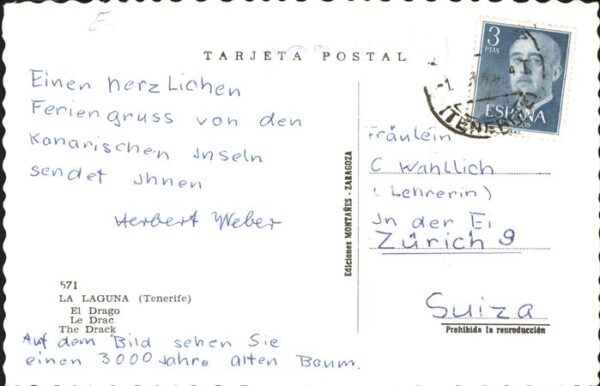 TARJETA POSTAL
3
PTAS
ESPAÑA
Einen herzlichen
Feriengruss von den
Kanarischen Inseln
sendet Ihnen
Herbert Weber
Fräulein
C Wahllich
(Lehrerin)
In der Ei
Zürich 9
Suiza
Ediciones MONTAÑES - ZARAGOZA
571
LA LAGUNA (Tenerife)
El Drago
Le Drac
The Drack
Prohibida la reproducción
Auf dem Bild sehen Sie
einen 3000 Jahre alten Baum.